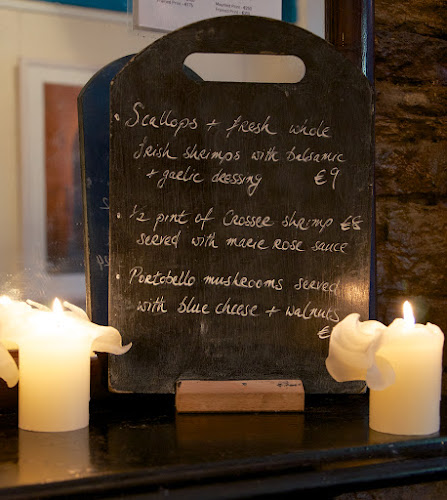 • Scallops + fresh whole
Irish shrimps with balsamic
+ gaelic dressing €9
• ½ pint of Crosser shrimp €8
served with marie rose sauce
• Portobello mushrooms served
with blue cheese + walnuts
€